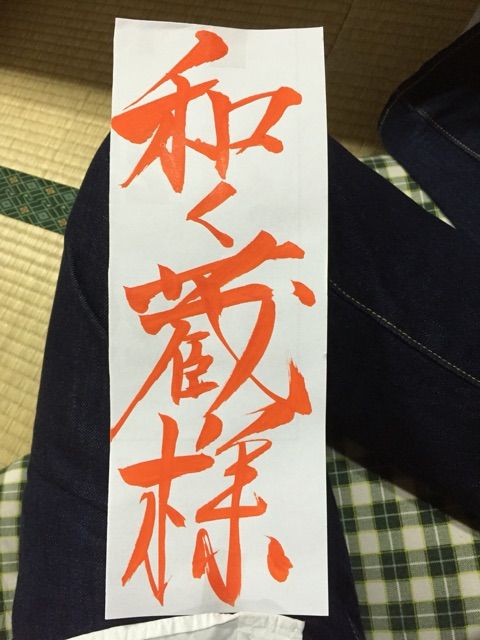 和く蔵様